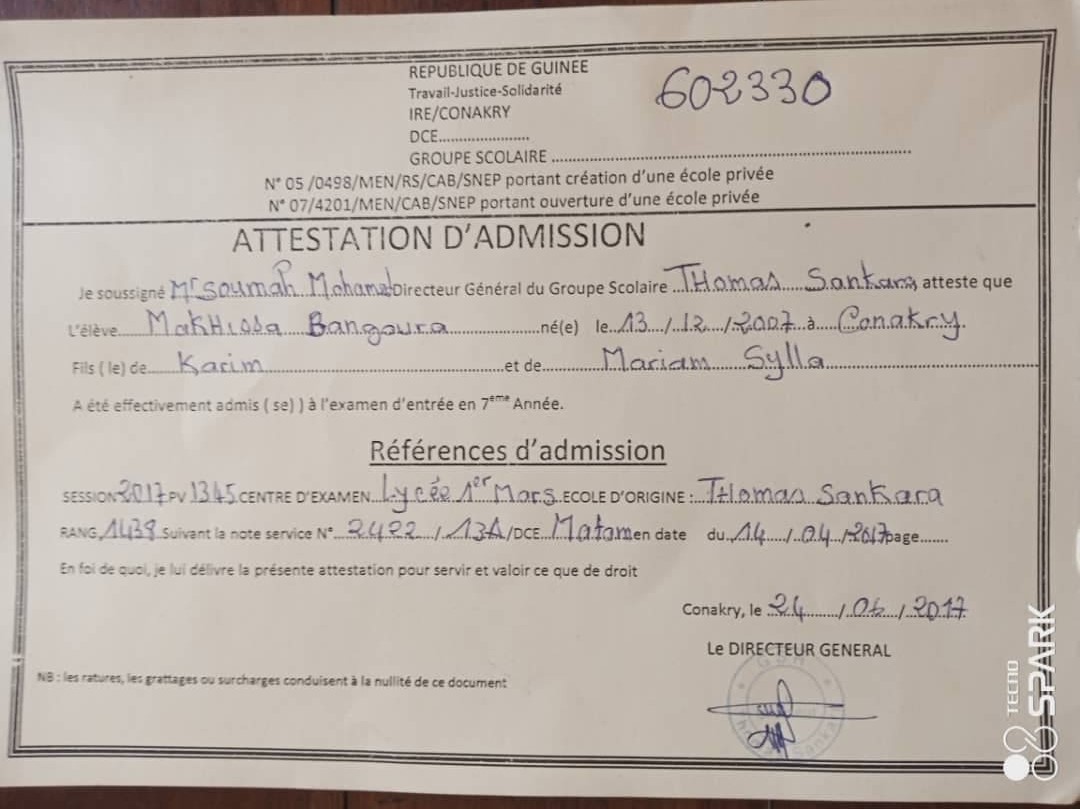 REPUBLIQUE DE GUINEE
602330
Travail-Justice-Solidarité
IRE/CONAKRY
DCE......................
GROUPE SCOLAIRE ..........................................................................
N° 05 /0498/MEN/RS/CAB/SNEP portant création d'une école privée
N° 07/4201/MEN/CAB/SNEP portant ouverture d'une école privée
ATTESTATION D'ADMISSION
Je soussigné Mr Soumah Mohamed Directeur Général du Groupe Scolaire THomas Sankara atteste que
L'élève MaKHissa Bangoura né(e) le 13/12/2007 à Conakry
Fils ( le) de Karim et de Mariam Sylla
A été effectivement admis ( se) ) à l'examen d'entrée en 7ème Année.
Références d'admission
SESSION 2017 PV 1345 CENTRE D'EXAMEN Lycée 1er Mars ECOLE D'ORIGINE : THomas Sankara
RANG 1438 Suivant la note service N° 2422 / 13A/DCE Matam en date du 14/04/2017 page.......
En foi de quoi, je lui délivre la présente attestation pour servir et valoir ce que de droit
Conakry, le 24/06/2017
Le DIRECTEUR GENERAL
NB : les ratures, les grattages ou surcharges conduisent à la nullité de ce document
Sankara
TECNO
SPARK